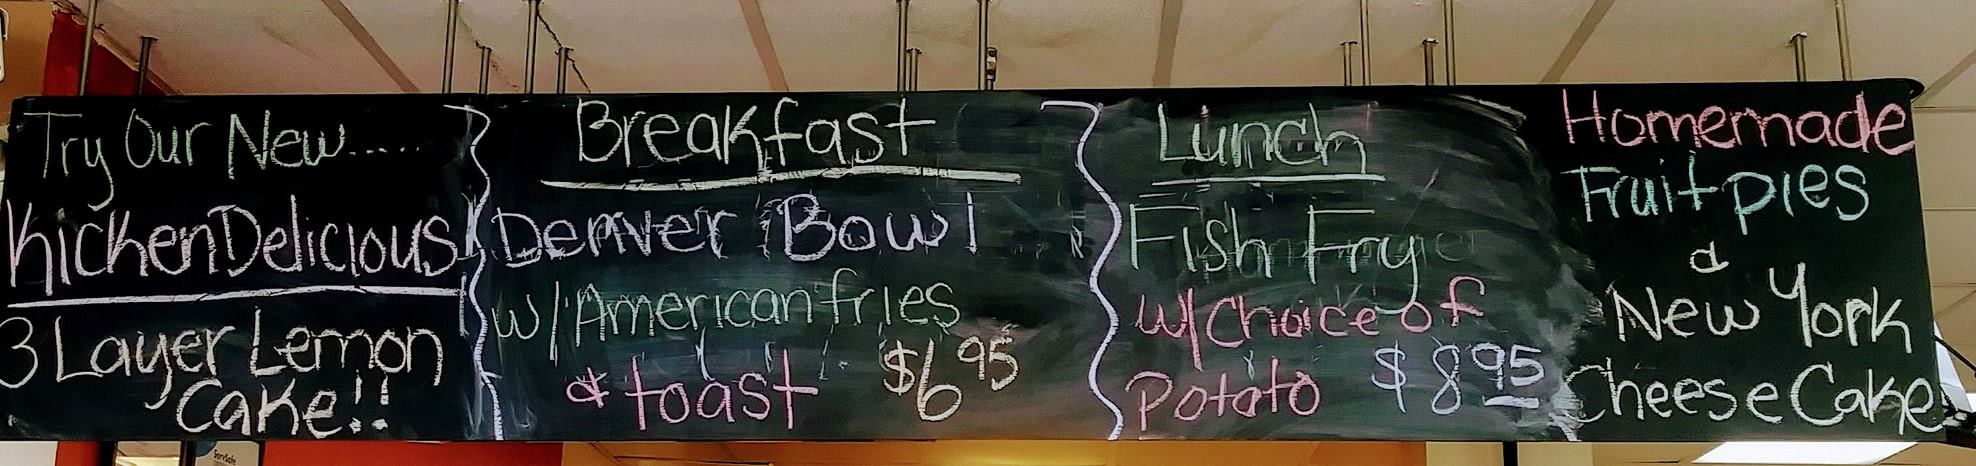 Try Our New.....
KickenDelicious
3 Layer Lemon
Cake!!
Breakfast
Denver Bowl
w/American fries
& toast $6.95
Lunch
Fish Fry
w/Choice of
Potato $8.95
Homemade
Fruit pies
&
New York
Cheese Cake
ServSafe